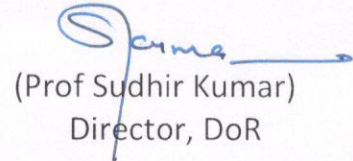 (Prof Sudhir Kumar)
Director, DoR